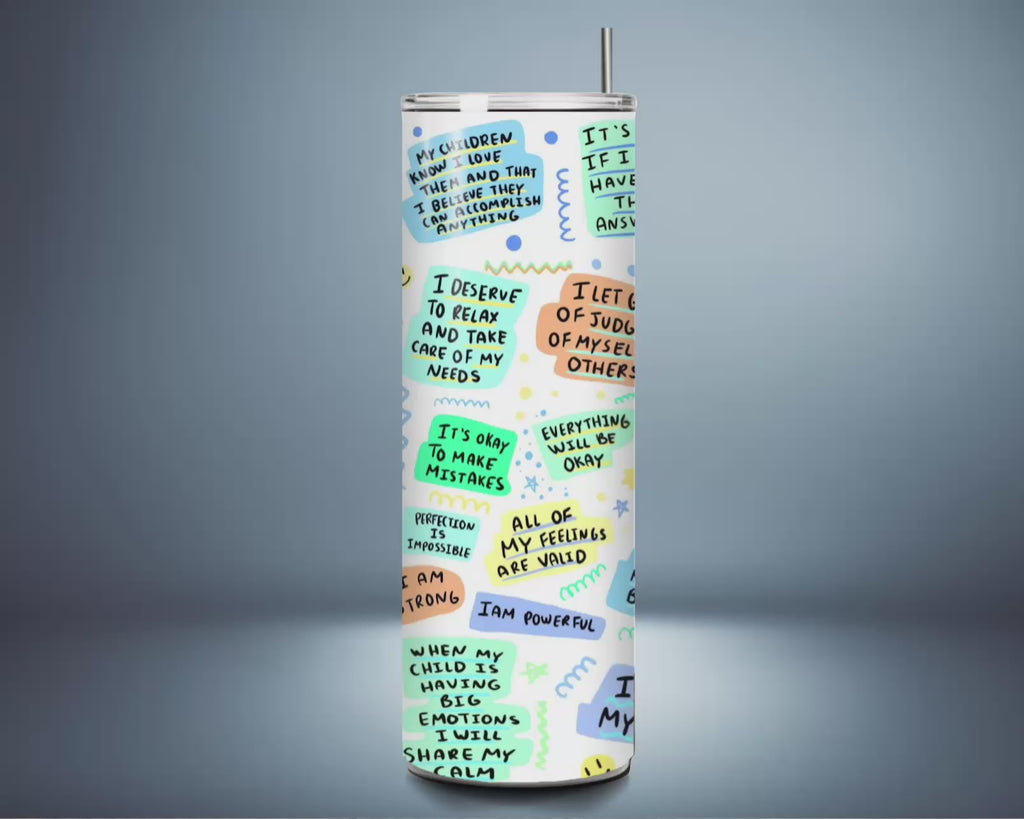 MY CHILDREN
KNOW I LOVE
THEM AND THAT
I BELIEVE THEY
CAN ACCOMPLISH
ANYTHING
IT'S
IF I
HAVE
TH
ANSW
I DESERVE
TO RELAX
AND TAKE
CARE OF MY
NEEDS
I LET G
OF JUDG
OF MYSEL
OTHERS
IT'S OKAY
TO MAKE
MISTAKES
EVERYTHING
WILL BE
OKAY
PERFECTION
IS
IMPOSSIBLE
ALL OF
MY FEELINGS
ARE VALID
I AM
STRONG
I AM POWERFUL
B
WHEN MY
CHILD IS
HAVING
BIG
EMOTIONS
I WILL
SHARE MY
CALM
I
MY